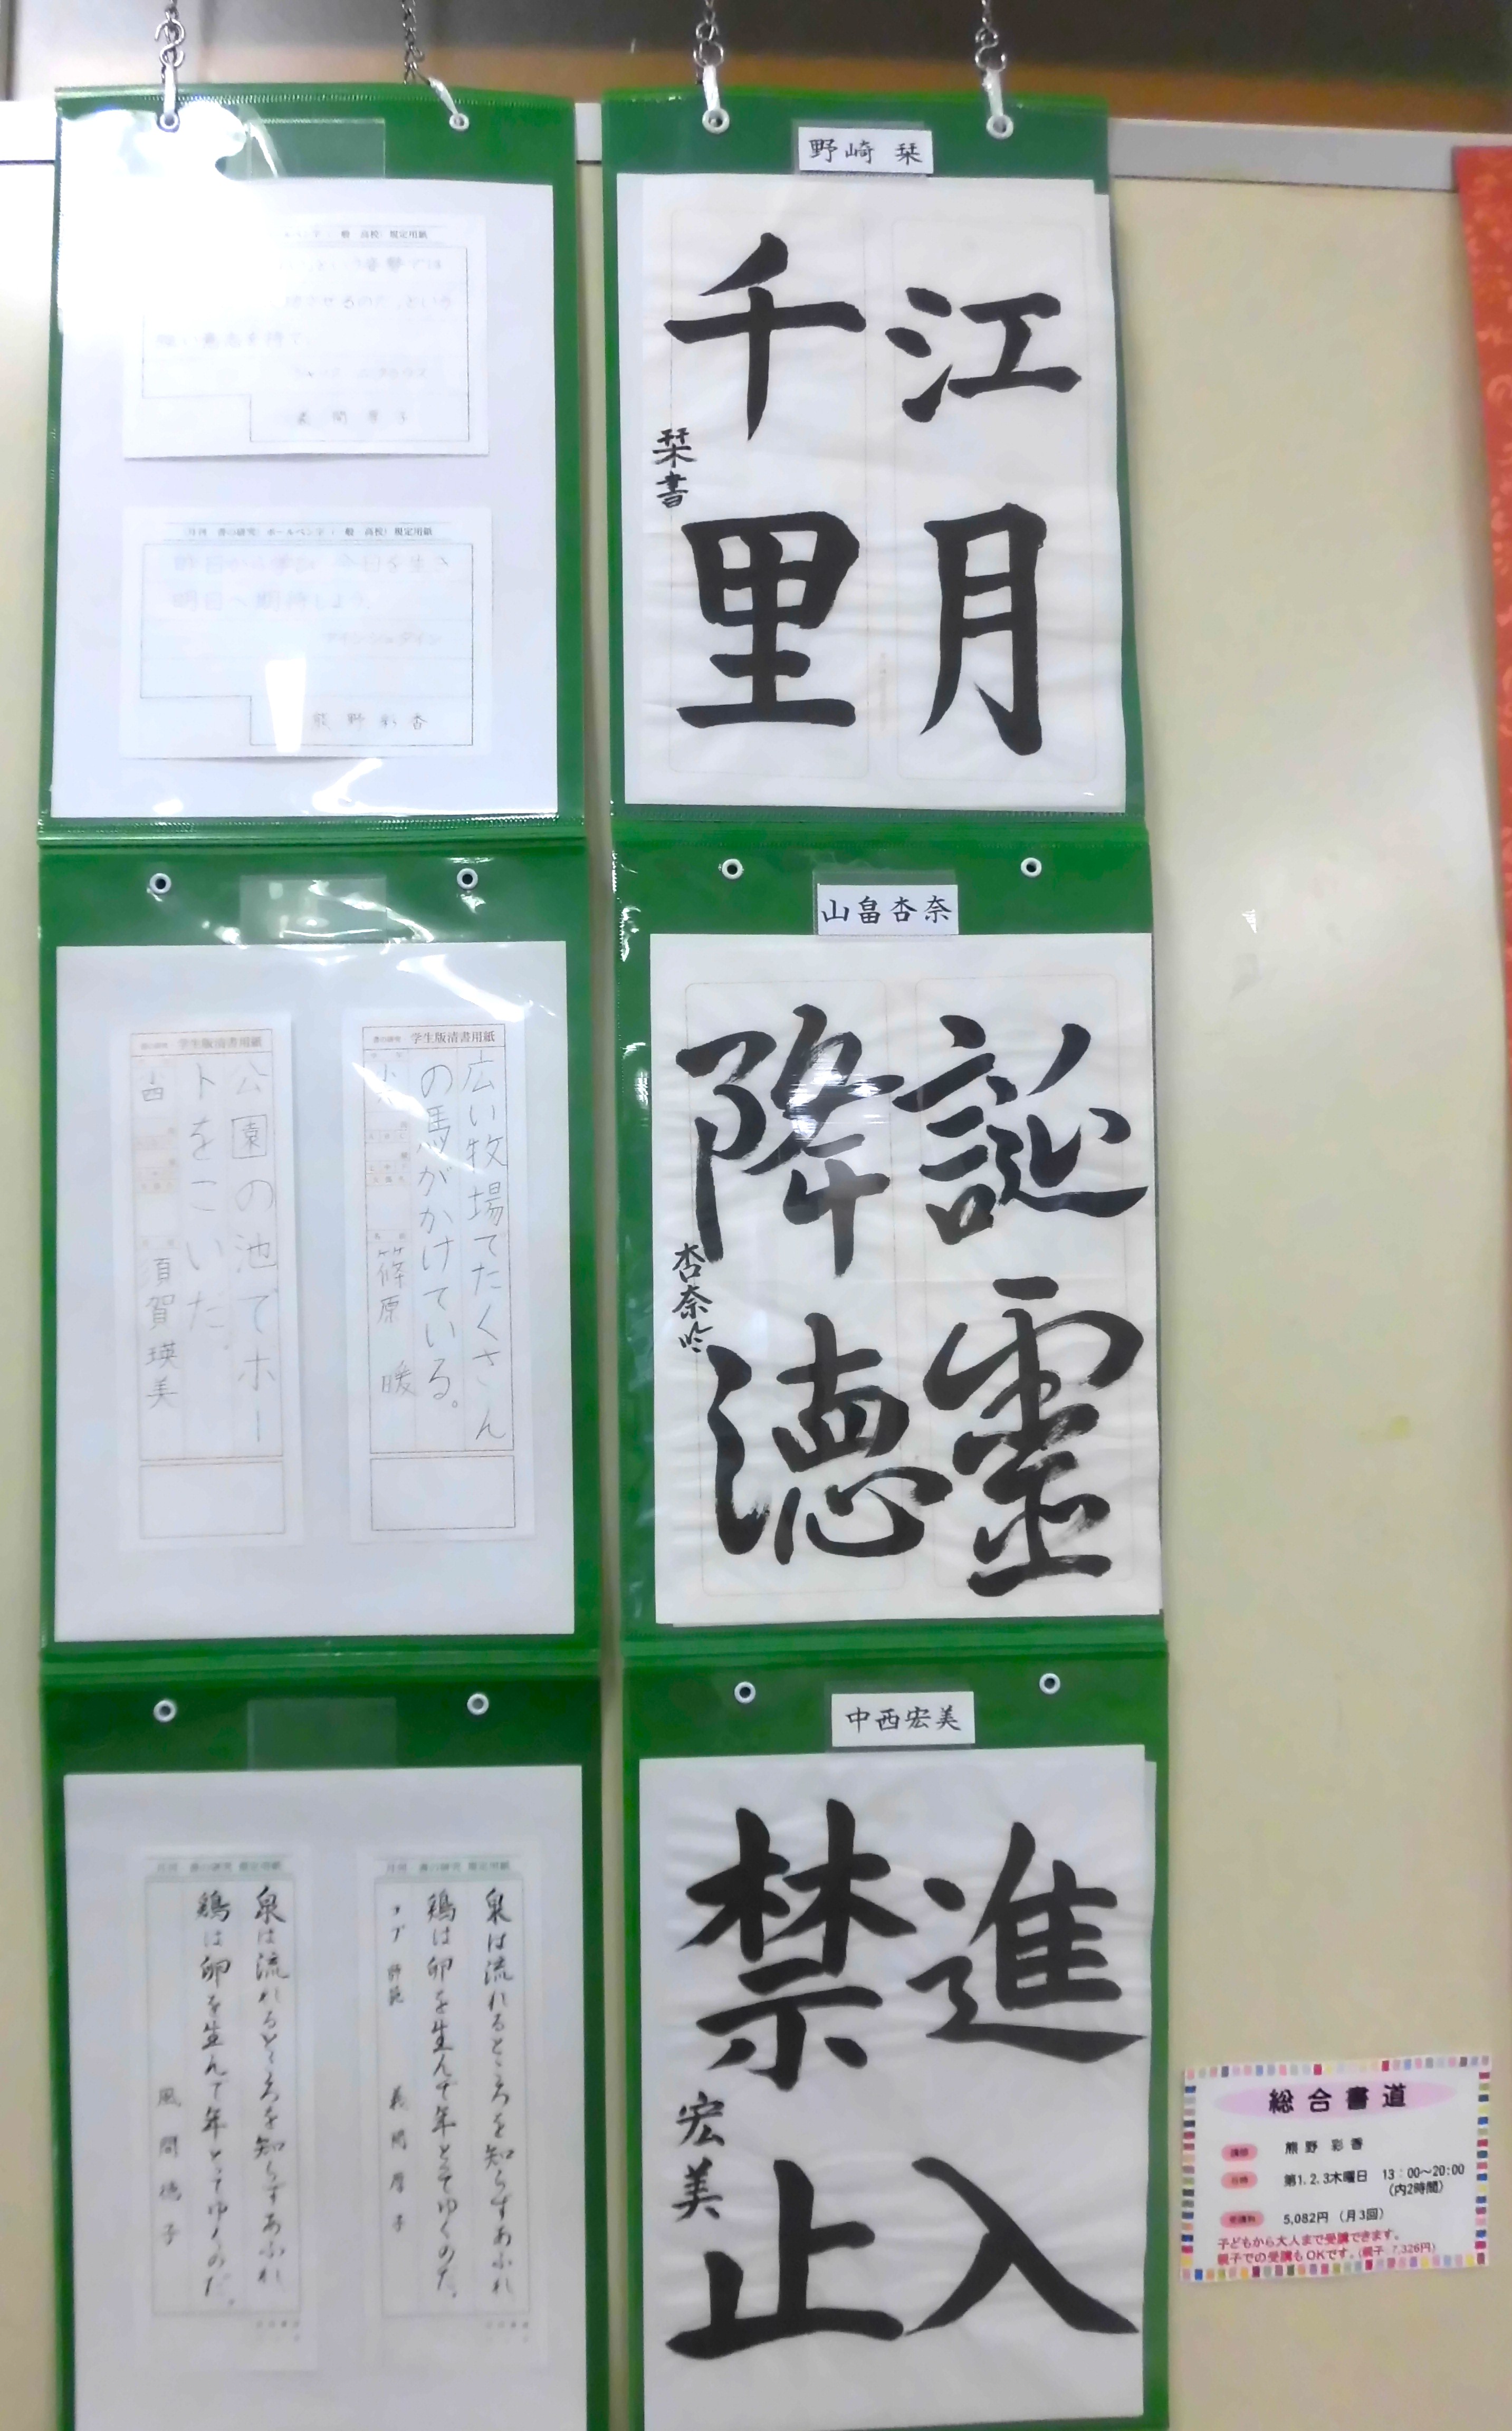 野崎 栞
江月
千里
栞書
山畠杏奈
誕靈
降徳
杏奈吟
中西宏美
進入
禁止
宏美
般 高校) 規定用紙
月刊 書の研究 ボールペン字 (一般 高校) 規定用紙
明日へ期待しよう。
アインシュタイン
熊野彩香
学生版清書用紙
広い牧場でたくさん
の馬がかけている。
篠原 暖
学生版清書用紙
公園の池でボー
トをこいだ。
須賀瑛美
月刊 書の研究 規定用紙
泉は流れるところを知らずあふれ
鶏は卵を生んで年とってゆくのだ。
月刊 書の研究 規定用紙
泉は流れるところを知らずあふれ
鶏は卵を生んで年とってゆくのだ。
風間
総合書道
講師 熊野 彩香
日時 第1.2.3木曜日 13:00〜20:00
(内2時間)
受講料 5,082円 (月3回)
子どもから大人まで受講できます。
親子での受講もOKです。(親子 7,326円)